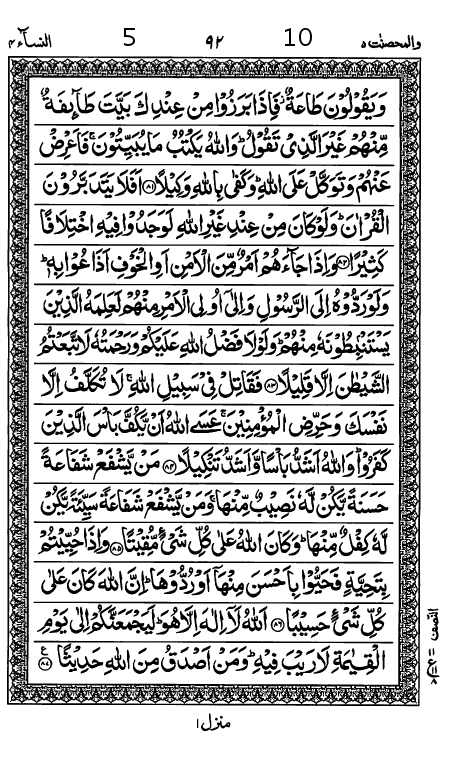 والمحصنت ۵ 10 ۹۲ 5 النسآء ۴
وَيَقُوۡلُوۡنَ طَاعَةٌ فَاِذَا بَرَزُوۡا مِنۡ عِنۡدِكَ بَيَّتَ طَآٮِٕفَةٌ
مِّنۡهُمۡ غَيۡرَ الَّذِىۡ تَقُوۡلُ ؕ وَاللّٰهُ يَكۡتُبُ مَا يُبَيِّتُوۡنَ ۚ فَاَعۡرِضۡ
عَنۡهُمۡ وَتَوَكَّلۡ عَلَى اللّٰهِ ؕ وَكَفٰى بِاللّٰهِ وَكِيۡلًا ﴿۸۱﴾ اَفَلَا يَتَدَبَّرُوۡنَ
الۡقُرۡاٰنَ ؕ وَلَوۡ كَانَ مِنۡ عِنۡدِ غَيۡرِ اللّٰهِ لَوَجَدُوۡا فِيۡهِ اخۡتِلَافًا
كَثِيۡرًا ﴿۸۲﴾ وَاِذَا جَآءَهُمۡ اَمۡرٌ مِّنَ الۡاَمۡنِ اَوِ الۡخَوۡفِ اَذَاعُوۡا بِهٖ ؕ
وَلَوۡ رَدُّوۡهُ اِلَى الرَّسُوۡلِ وَاِلٰٓى اُولِى الۡاَمۡرِ مِنۡهُمۡ لَعَلِمَهُ الَّذِيۡنَ
يَسۡتَنۢۡبِطُوۡنَهٗ مِنۡهُمۡ ؕ وَلَوۡلَا فَضۡلُ اللّٰهِ عَلَيۡكُمۡ وَرَحۡمَتُهٗ لَاتَّبَعۡتُمُ
الشَّيۡطٰنَ اِلَّا قَلِيۡلًا ﴿۸۳﴾ فَقَاتِلۡ فِىۡ سَبِيۡلِ اللّٰهِ ۚ لَا تُكَلَّفُ اِلَّا
نَفۡسَكَ وَحَرِّضِ الۡمُؤۡمِنِيۡنَ ۚ عَسَى اللّٰهُ اَنۡ يَّكُفَّ بَاۡسَ الَّذِيۡنَ
كَفَرُوۡا ؕ وَاللّٰهُ اَشَدُّ بَاۡسًا وَّاَشَدُّ تَنۡكِيۡلًا ﴿۸۴﴾ مَنۡ يَّشۡفَعۡ شَفَاعَةً
حَسَنَةً يَّكُنۡ لَّهٗ نَصِيۡبٌ مِّنۡهَا ۚ وَمَنۡ يَّشۡفَعۡ شَفَاعَةً سَيِّئَةً يَّكُنۡ
لَّهٗ كِفۡلٌ مِّنۡهَا ؕ وَكَانَ اللّٰهُ عَلٰى كُلِّ شَىۡءٍ مُّقِيۡتًا ﴿۸۵﴾ وَاِذَا حُيِّيۡتُمۡ
بِتَحِيَّةٍ فَحَيُّوۡا بِاَحۡسَنَ مِنۡهَاۤ اَوۡ رُدُّوۡهَا ؕ اِنَّ اللّٰهَ كَانَ عَلٰى
كُلِّ شَىۡءٍ حَسِيۡبًا ﴿۸۶﴾ اَللّٰهُ لَاۤ اِلٰهَ اِلَّا هُوَ ؕ لَيَجۡمَعَنَّكُمۡ اِلٰى يَوۡمِ
الۡقِيٰمَةِ لَا رَيۡبَ فِيۡهِ ؕ وَمَنۡ اَصۡدَقُ مِنَ اللّٰهِ حَدِيۡثًا ﴿۸۷﴾
منزل ۱